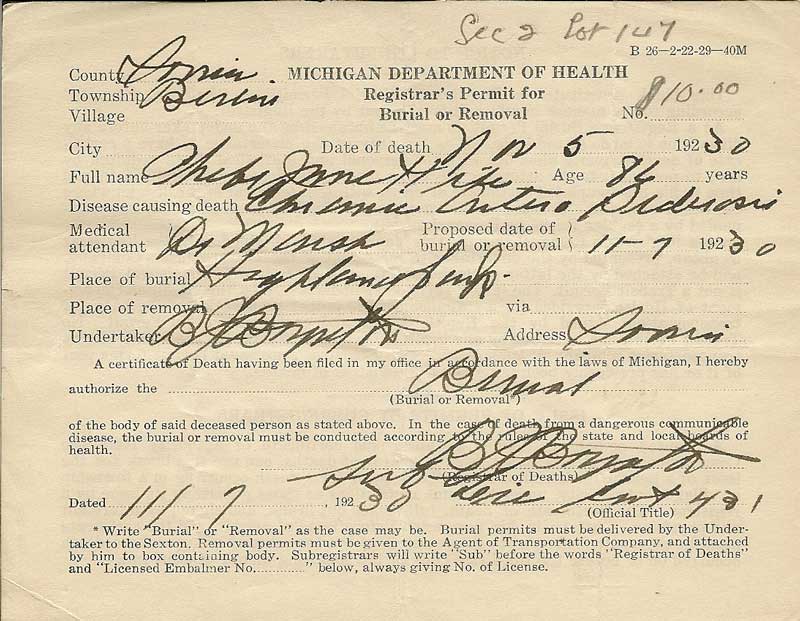 Sec 2 Lot 147
B 26—2-22-29—40M
County Ionia MICHIGAN DEPARTMENT OF HEALTH
Township Berlin Registrar's Permit for
Village Burial or Removal No. $10.00
City Date of death Nov 5 1930
Full name Phebe Jane Age 86 years
Disease causing death Chronic
Medical attendant Dr Marsh Proposed date of burial or removal 11-7 1930
Place of burial Highland Park
Place of removal via
Undertaker B Boynton Address Ionia
A certificate of Death having been filed in my office in accordance with the laws of Michigan, I hereby
authorize the Burial
(Burial or Removal*)
of the body of said deceased person as stated above. In the case of death from a dangerous communicable
disease, the burial or removal must be conducted according to the rules of the state and local boards of
health.
B Boynton
(Registrar of Deaths)
Dated 11/7, 1930 Sub
(Official Title)
* Write "Burial" or "Removal" as the case may be. Burial permits must be delivered by the Under-
taker to the Sexton. Removal permits must be given to the Agent of Transportation Company, and attached
by him to box containing body. Subregistrars will write "Sub" before the words "Registrar of Deaths"
and "Licensed Embalmer No............" below, always giving No. of License.